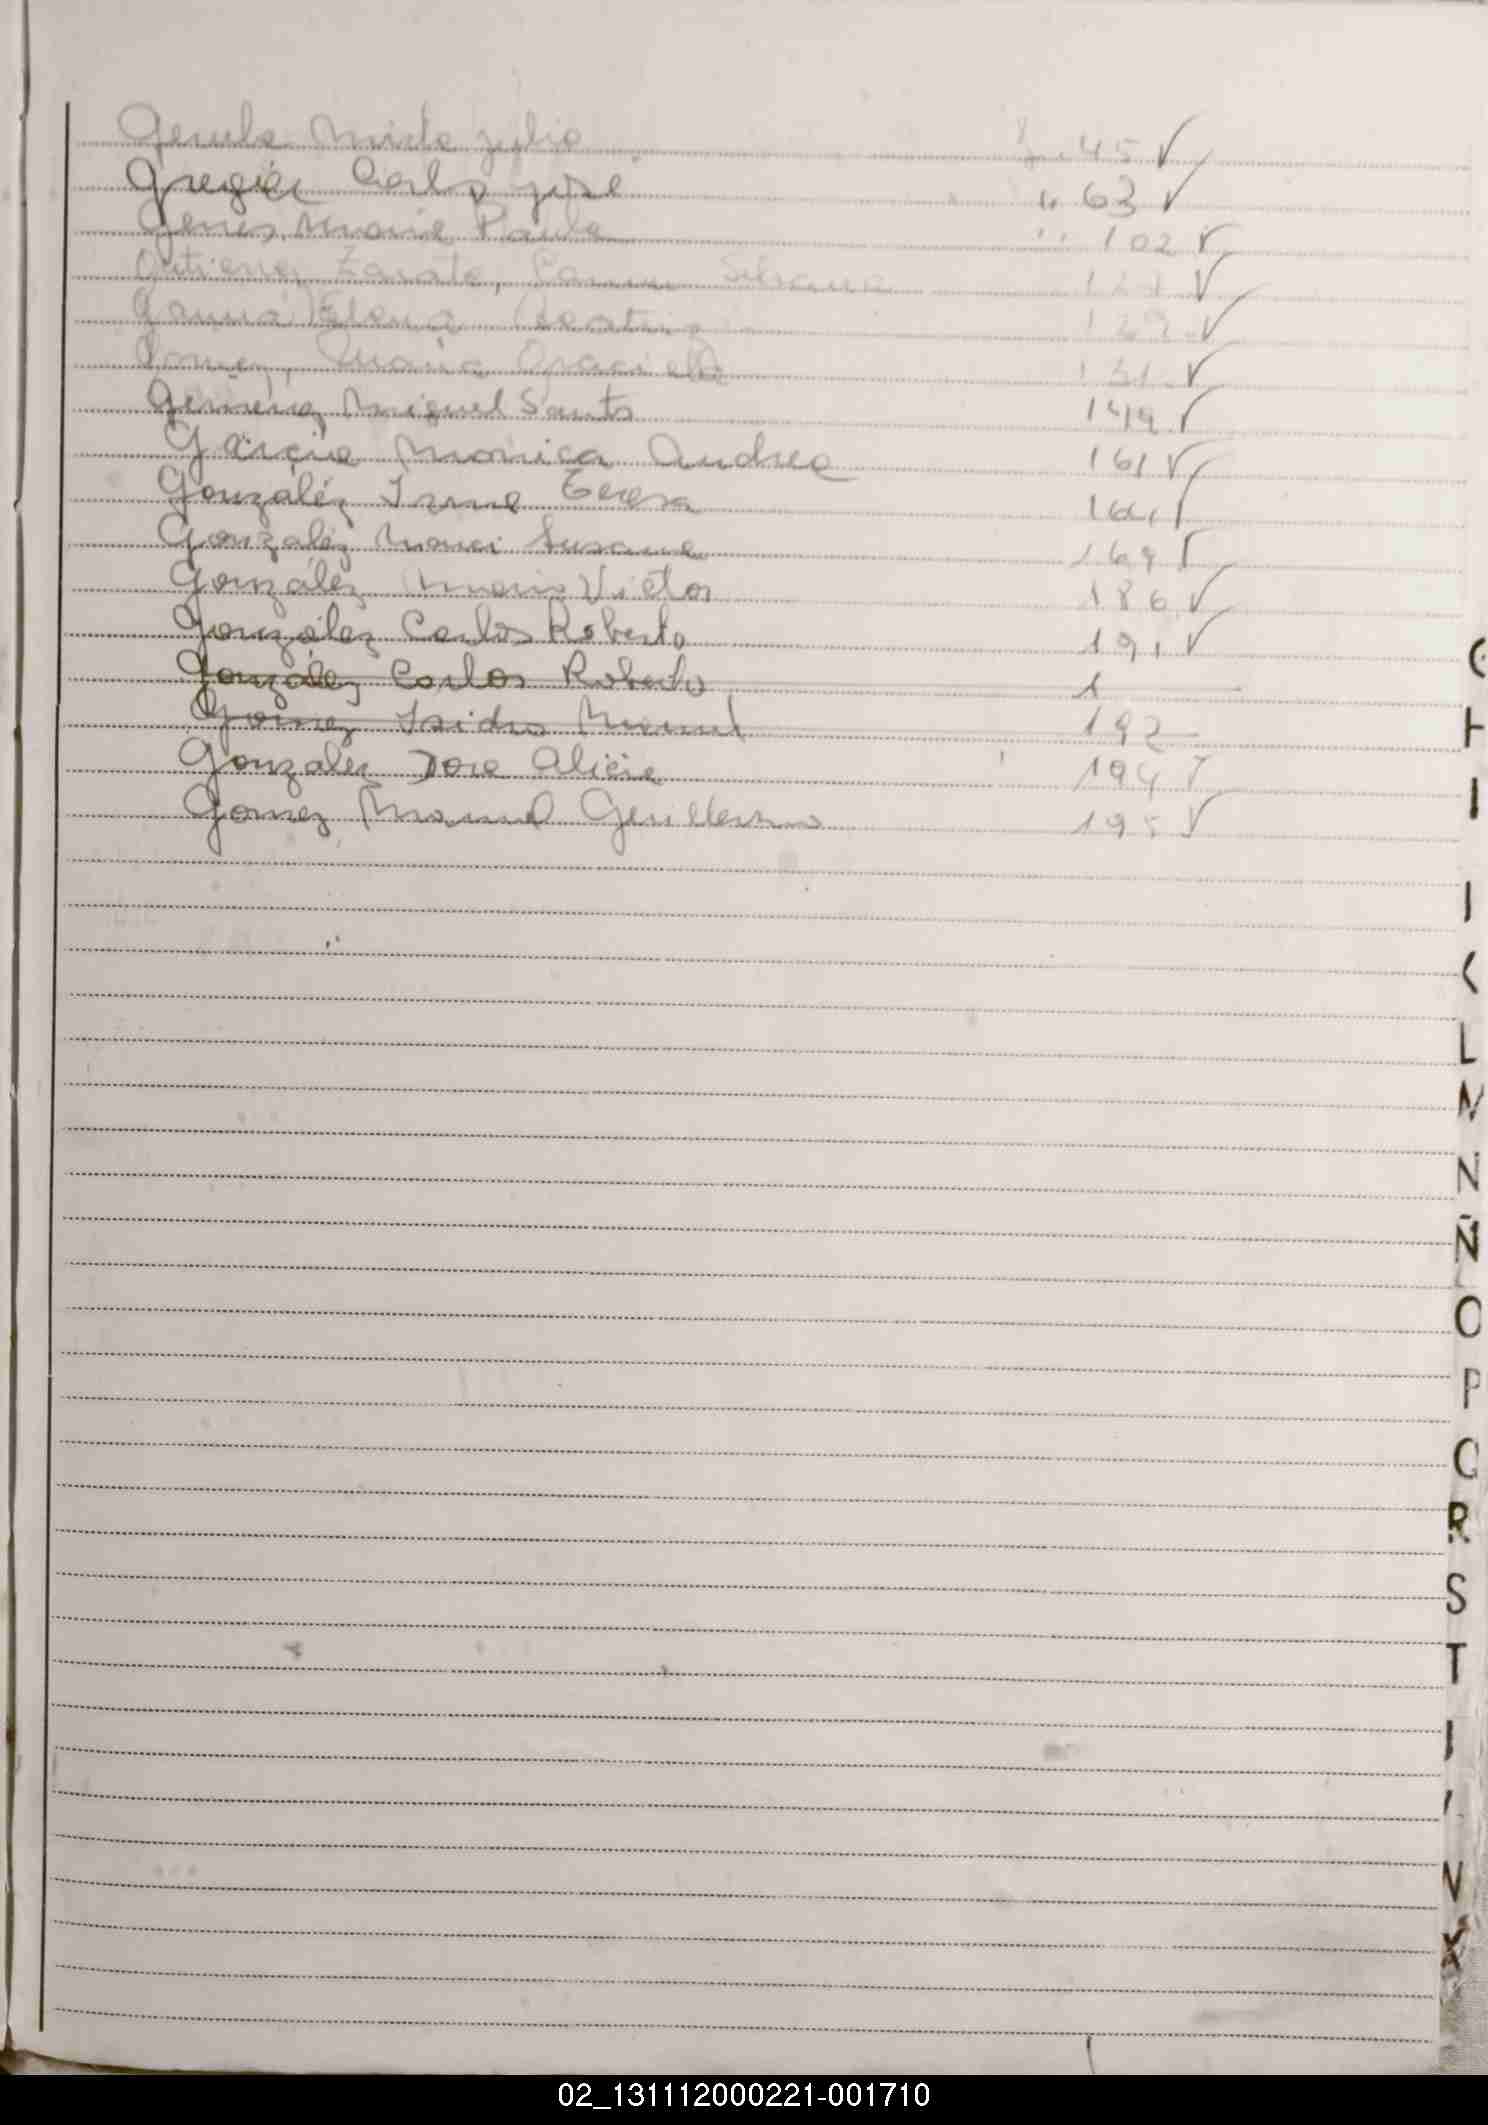 Mirta Julia 45 ✓
Carlos José " 63 ✓
Genes, Maria Paula " 102 ✓
Zarate, ✓
Elena Beatriz 129 ✓
Gomez, Maria Graciela 131 ✓
Gimenez Miguel Santos 149 ✓
Garcia Monica Andrea 161 ✓
González Irene Teresa ✓
González Susana 169 ✓
González Mario Victor 186 ✓
González Carlos Roberto 191 ✓
González Carlos Roberto 1
Gomez Isidro Manuel 192
González Dora Alicia 194 ✓
Gomez Manuel Guillermo 195 ✓
G
H
I
J
K
L
M
N
Ñ
O
P
Q
R
S
T
V
X
02_131112000221-001710